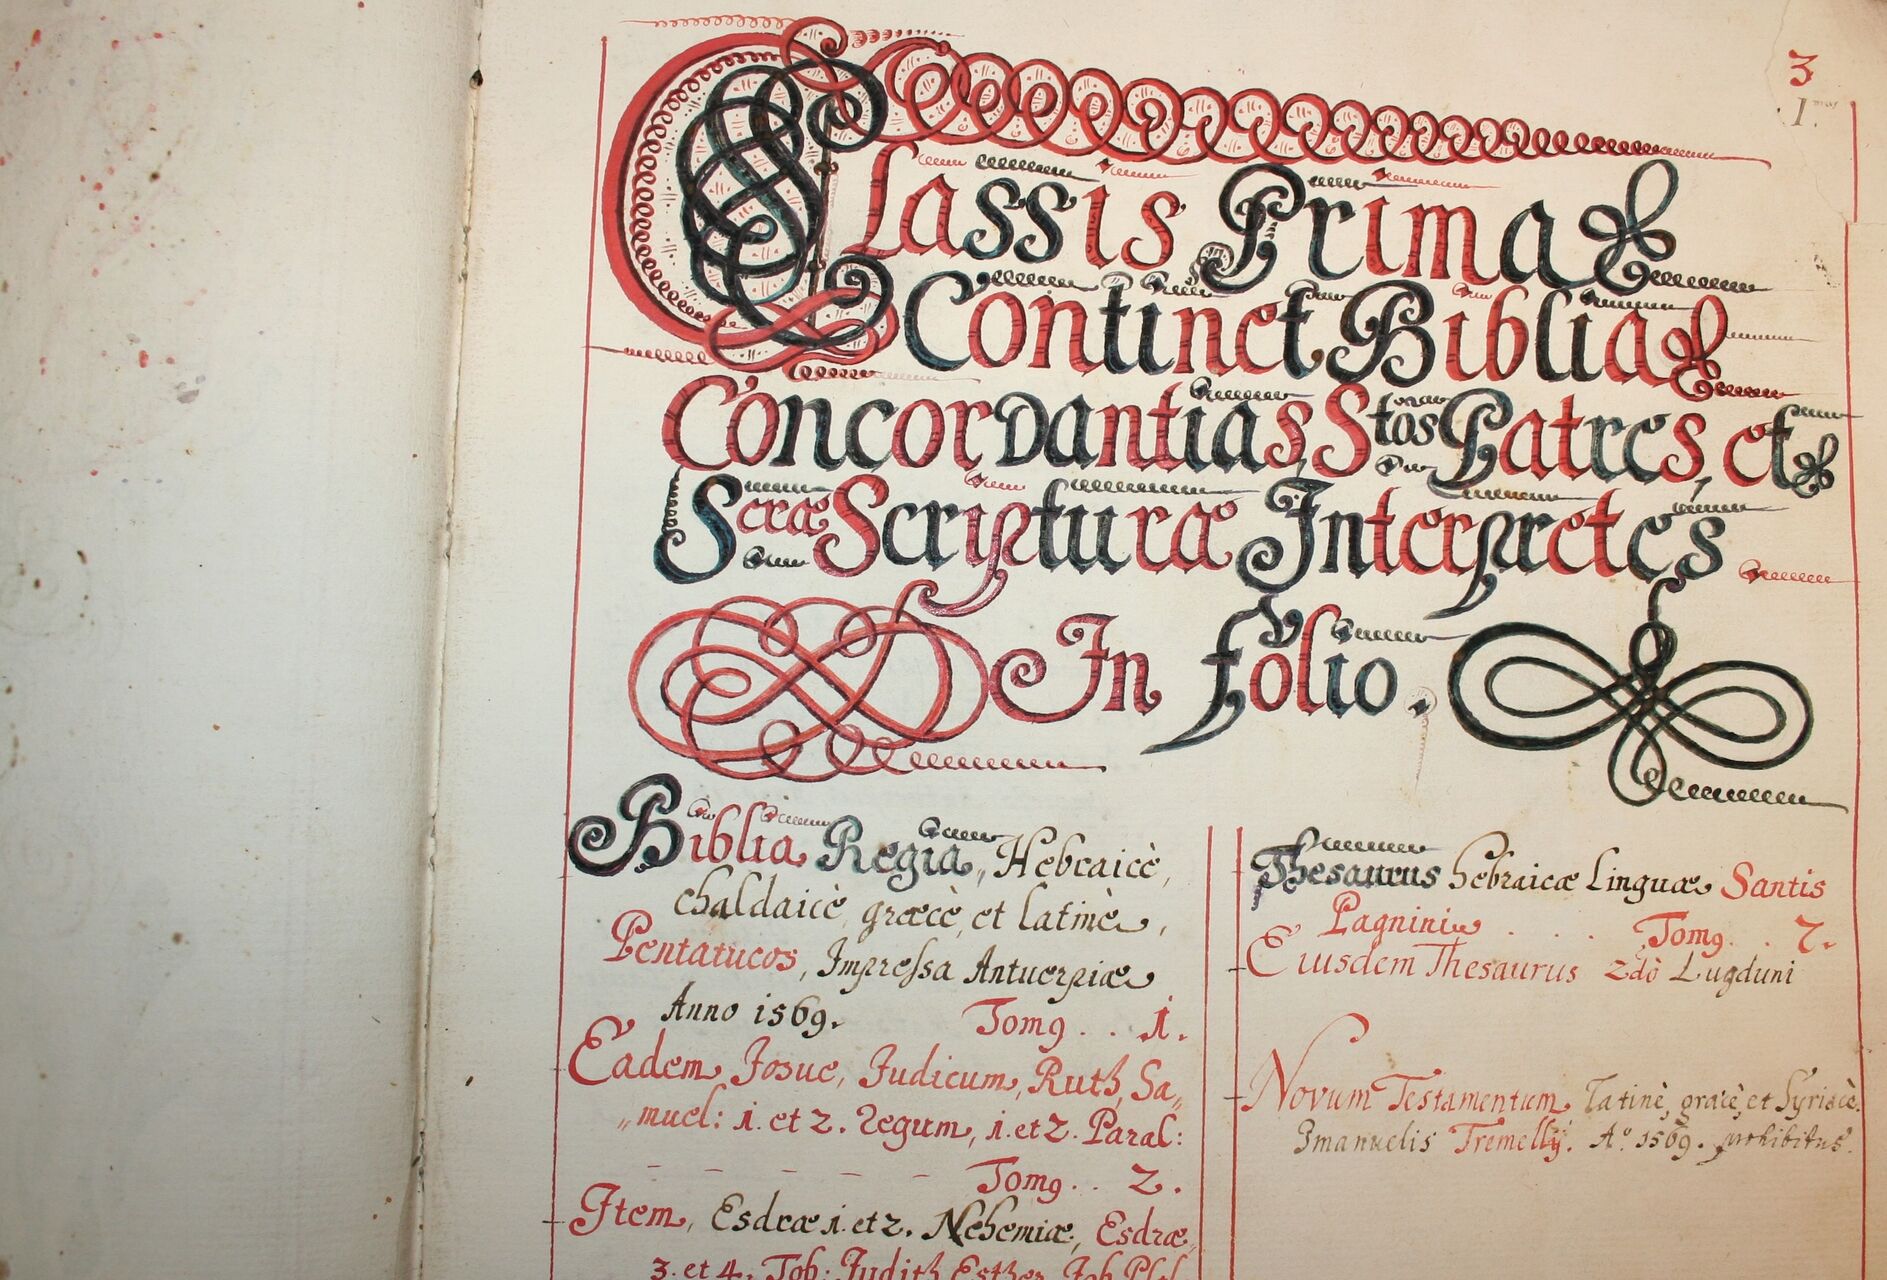 3
1.
Classis Prima
Continet Biblia
Concordantias, Stos Patres, et
Scræ Scripturæ Interpretes
In folio.
Biblia Regia, Hebraicè,
chaldaicè, græcè, et latinè,
Pentatucos, Impressa Antuerpiæ
Anno 1569. Tomꝰ . . 1.
Eadem Josue, Judicum, Ruth, Sa„
„muel: 1. et 2. Regum, 1. et 2. Paral:
Tomꝰ . . 2.
Item, Esdræ 1. et 2. Nehemiæ, Esdræ
3. et 4. Tob: Judith Esther Job
Thesaurus hebraicæ Linguæ Santis
Pagnini . . . Tomꝰ . . 2.
Eiusdem Thesaurus 2dò Lugduni
Novum Testamentum Latinè, græcè, et Syriacè.
Imanuelis Tremellij. Aº 1569. prohibitus.